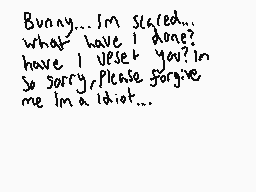 Bunny... Im scared...
what have I done?
have I upset you? Im
so sorry, Please forgive
me Im a Idiot...